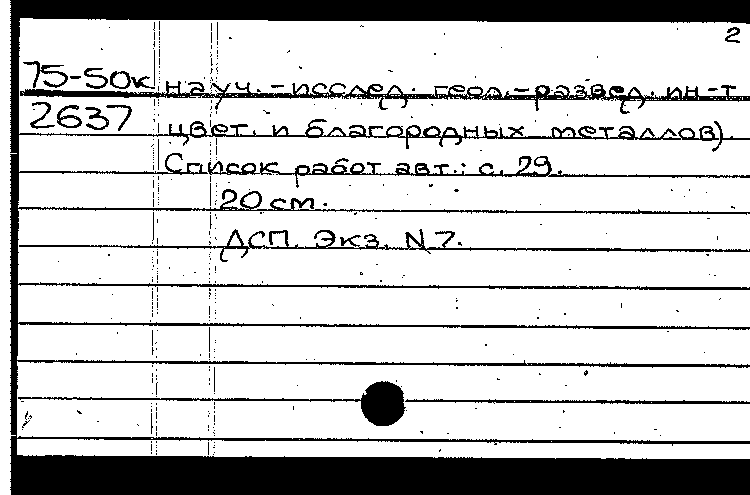 2
75-50к науч.-исслед. геол.-развед. ин-т
2637 цвет. и благородных металлов).
Список работ авт.: с. 29.
20 см.
ДСП. Экз. N 7.